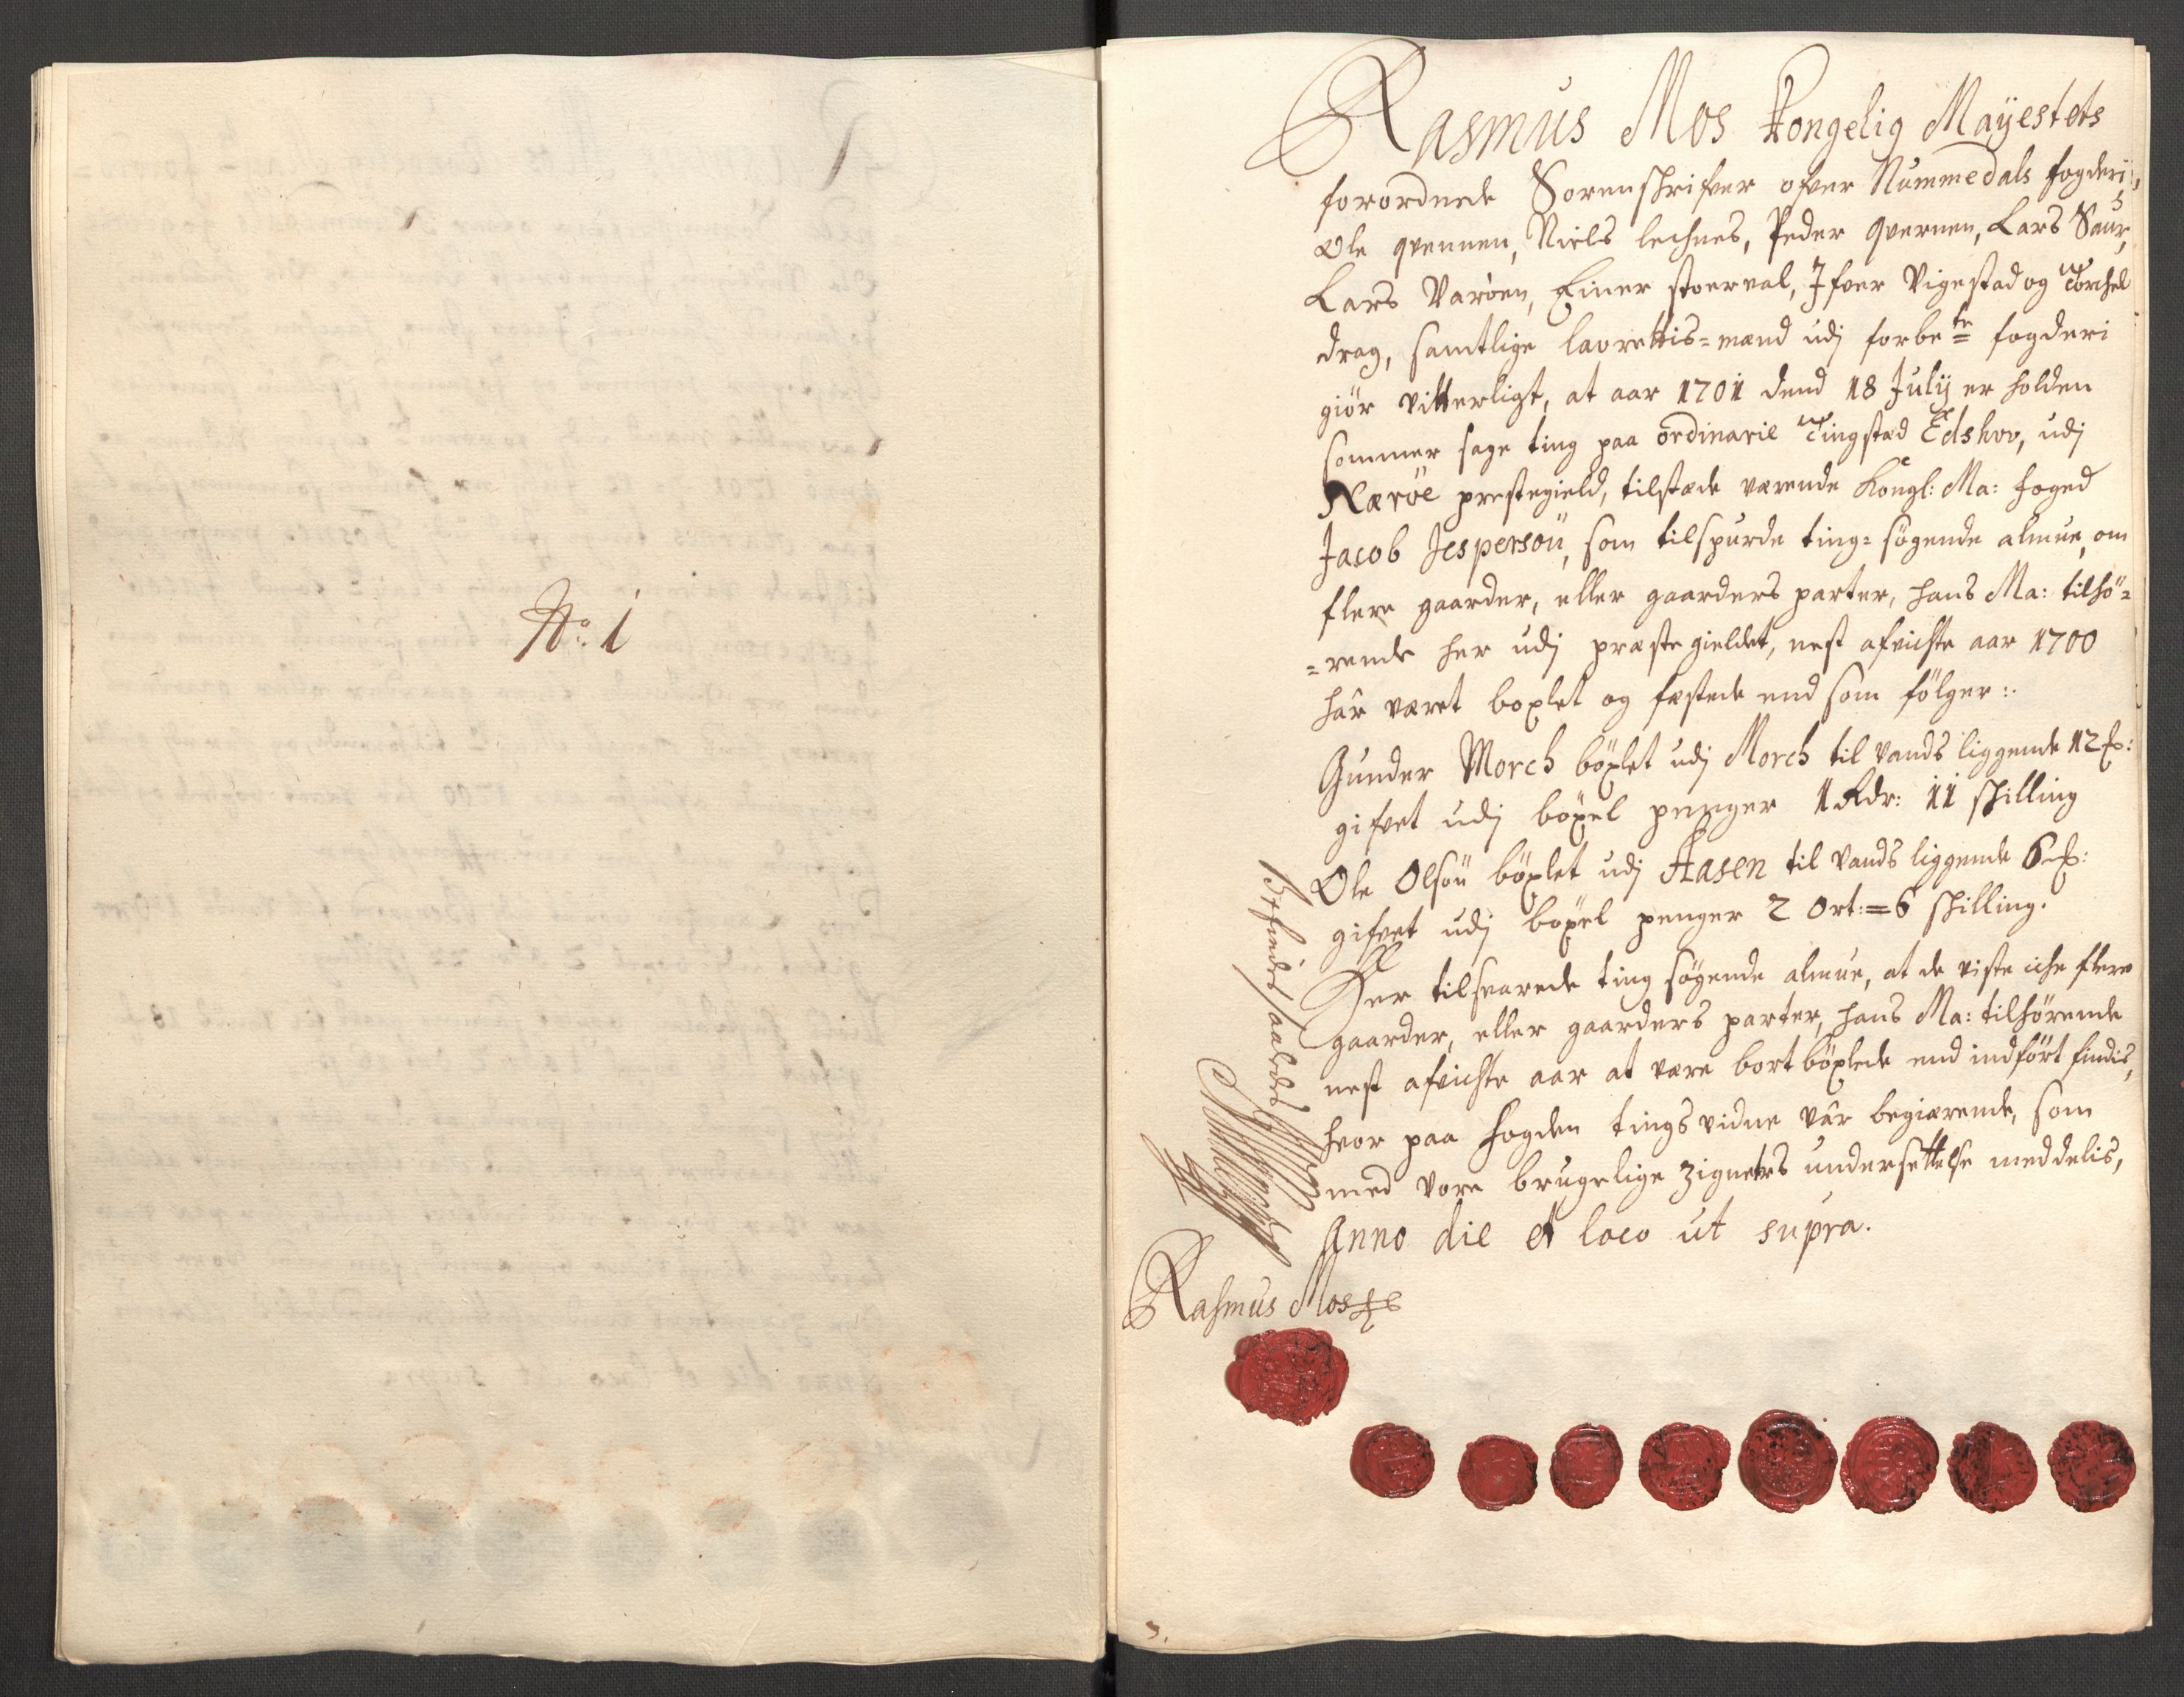 No: 1
Rasmus Mos Kongelig Mayestets
forordnede Sorenskrifver ofver Nummedals fogderi,
Ole qvennen, Niels lechnes, Peder qvernen, Lars Saur,
Lars Varöen, Einer storval, Ifver Vigestad og Torchel
drag, samtlige laurettis=mænd udj forbete fogderi
giör vitterligt, at aar 1701 dend 18 Julij er holden
sommer sage ting paa ordinarie Tingstæd Edshov, udj
Næröe prestegield, tilstæde værende Kongl: Ma: foged
Jacob Jespersön, som tilspurde ting=søgende almue, om
flere gaarder, eller gaarders parter, hans Ma: tilhö=
=rende her udj præstegieldet, nest afvichte aar 1700
hâr været boxlet og fæstede end som fölger:
Gunder Morch böxlet udj Morch til vands liggende 12
gifvet udj böxel penger 1 Rdr: 11 skilling
Ole Olsön böxlet udj Aasen til vands liggende 6
gifvet udj böxel penger 2 Ort:=6 skilling.
Her tilsvarede ting søgende almue, at de viste iche flere
gaarder, eller gaarders parter, hans Ma: tilhörende
nest afvichte aar at være bort böxlede end indfört findis,
hvor paa fogden tings vidne vâr begiærende, som
med vore brugelige zigneters undersettelse meddelis,
Anno die et loco ut supra.
Befindes saaledes
Rasmus Mos
3.